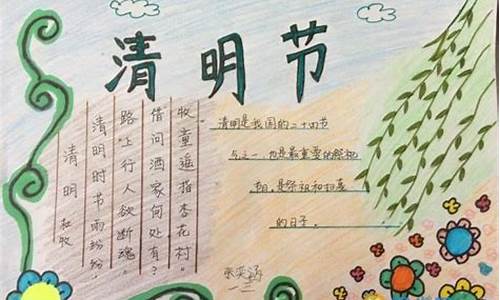 清明节
清明 杜牧
清明时节雨纷纷，
路上行人欲断魂。
借问酒家何处有？
牧童遥指杏花村。
清明是我国的二十四节
气之一，也是最重要的祭祀
节日，是祭祖和扫墓
的日子。